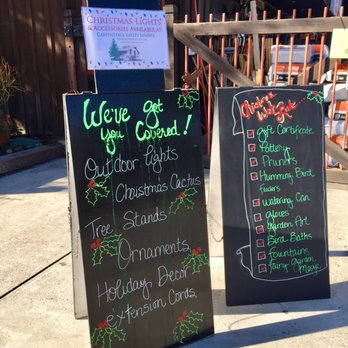 Christmas Lights
& Accessories Available at
Carpinteria Valley Lumber
We've got
you Covered!
Outdoor lights
Christmas Cactus
Tree Stands
Ornaments
Holiday Decor
extension Cords
Christmas
Wish List
Gift Certificate
Pottery
Pruners
Humming Bird
feeders
Watering Can
Gloves
Garden Art
Bird Baths
Fountains
Fairy Garden